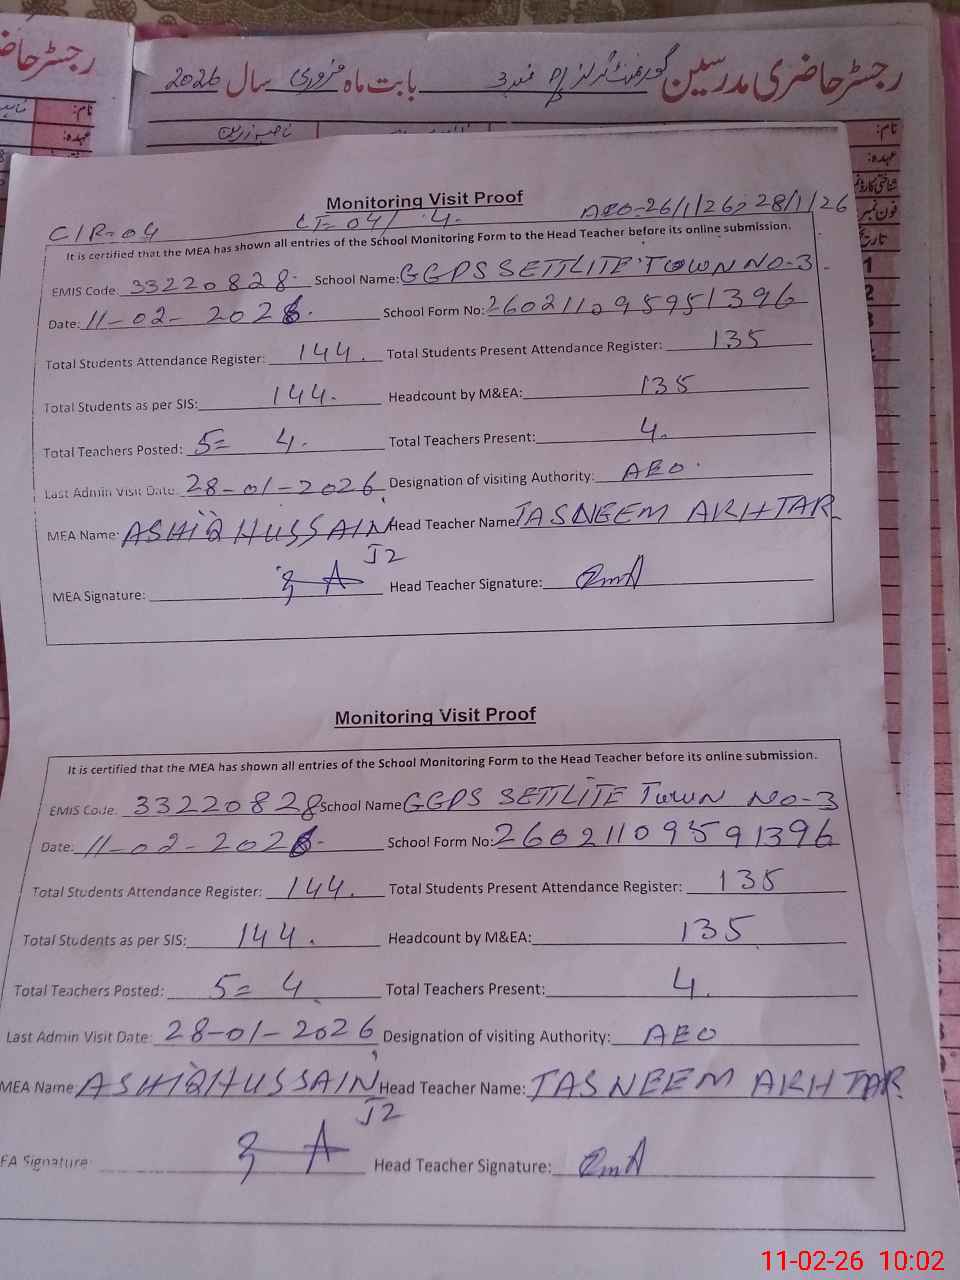 رجسٹر حاضری
رجسٹر حاضری مدرسین گورنمنٹ گرلز پرائمری نمبر 3 بابت ماہ فروری سال 2026
نام:
نام:
عہدہ:
عہدہ:
شناختی کارڈ نمبر
فون نمبر
1
2
Monitoring Visit Proof
CIR=04 CT=04/4. AEO-26/1/26, 28/1/26
It is certified that the MEA has shown all entries of the School Monitoring Form to the Head Teacher before its online submission.
EMIS Code: 33220828 School Name: GGPS SETTLITE TOWN NO-3
Date: 11-02-2026. School Form No: 260211095951396
Total Students Attendance Register: 144. Total Students Present Attendance Register: 135
Total Students as per SIS: 144. Headcount by M&EA: 135
Total Teachers Posted: 5= 4. Total Teachers Present: 4.
Last Admin Visit Date: 28-01-2026 Designation of visiting Authority: AEO.
MEA Name: ASHIQ HUSSAIN Head Teacher Name: TASNEEM AKHTAR
J2
MEA Signature: Head Teacher Signature:
Monitoring Visit Proof
It is certified that the MEA has shown all entries of the School Monitoring Form to the Head Teacher before its online submission.
EMIS Code: 33220828 School Name GGPS SETTLITE TOWN NO-3
Date: 11-02-2026. School Form No: 26021109591396
Total Students Attendance Register: 144. Total Students Present Attendance Register: 135
Total Students as per SIS: 144. Headcount by M&EA: 135
Total Teachers Posted: 5= 4. Total Teachers Present: 4.
Last Admin Visit Date: 28-01-2026 Designation of visiting Authority: AEO
MEA Name: ASHIQ HUSSAIN Head Teacher Name: TASNEEM AKHTAR
J2
EA Signature: Head Teacher Signature:
11-02-26 10:02